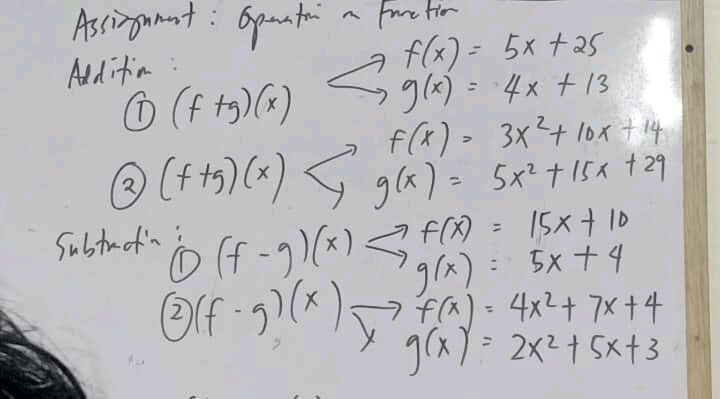 Assignment: Operation on Function
Addition:
① (f+g)(x) f(x) = 5x + 25
g(x) = 4x + 13
② (f+g)(x) f(x) = 3x² + 10x + 14
g(x) = 5x² + 15x + 29
Subtraction:
① (f - g)(x) f(x) = 15x + 10
g(x) = 5x + 4
② (f - g)(x) f(x) = 4x² + 7x + 4
g(x) = 2x² + 5x + 3